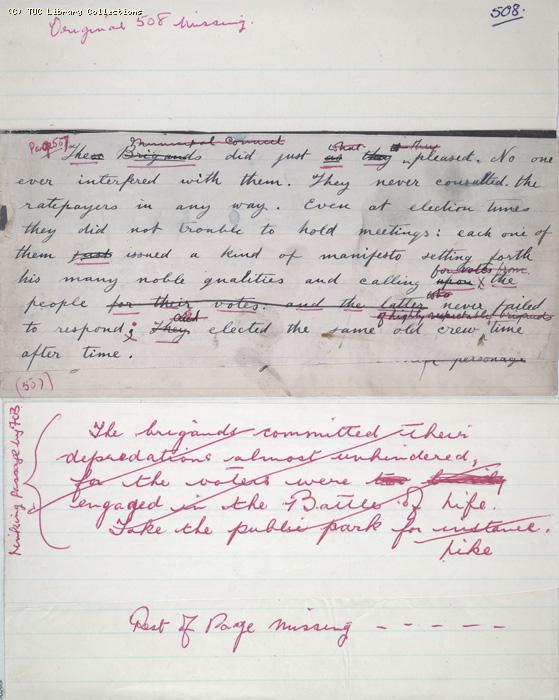 (C) TUC Library Collections
508.
Original 508 Missing.
Part 507
Municipal Council what they
These Brigands did just as they pleased. No one
ever interfered with them. They never consulted the
ratepayers in any way. Even at election times
they did not trouble to hold meetings: each one of
them just issued a kind of manifesto setting forth
for votes from
his many noble qualities and calling upon the
who
people for their votes. and the latter never failed
and of highly respectable brigands
to respond; They elected the same old crew time
after time. personage
(507)
Linking passage by
The brigands committed their
depredations almost unhindered,
for the voters were too busily
engaged in the Battle of Life.
Take the public park for instance.
Like
Rest of Page Missing - - - - -